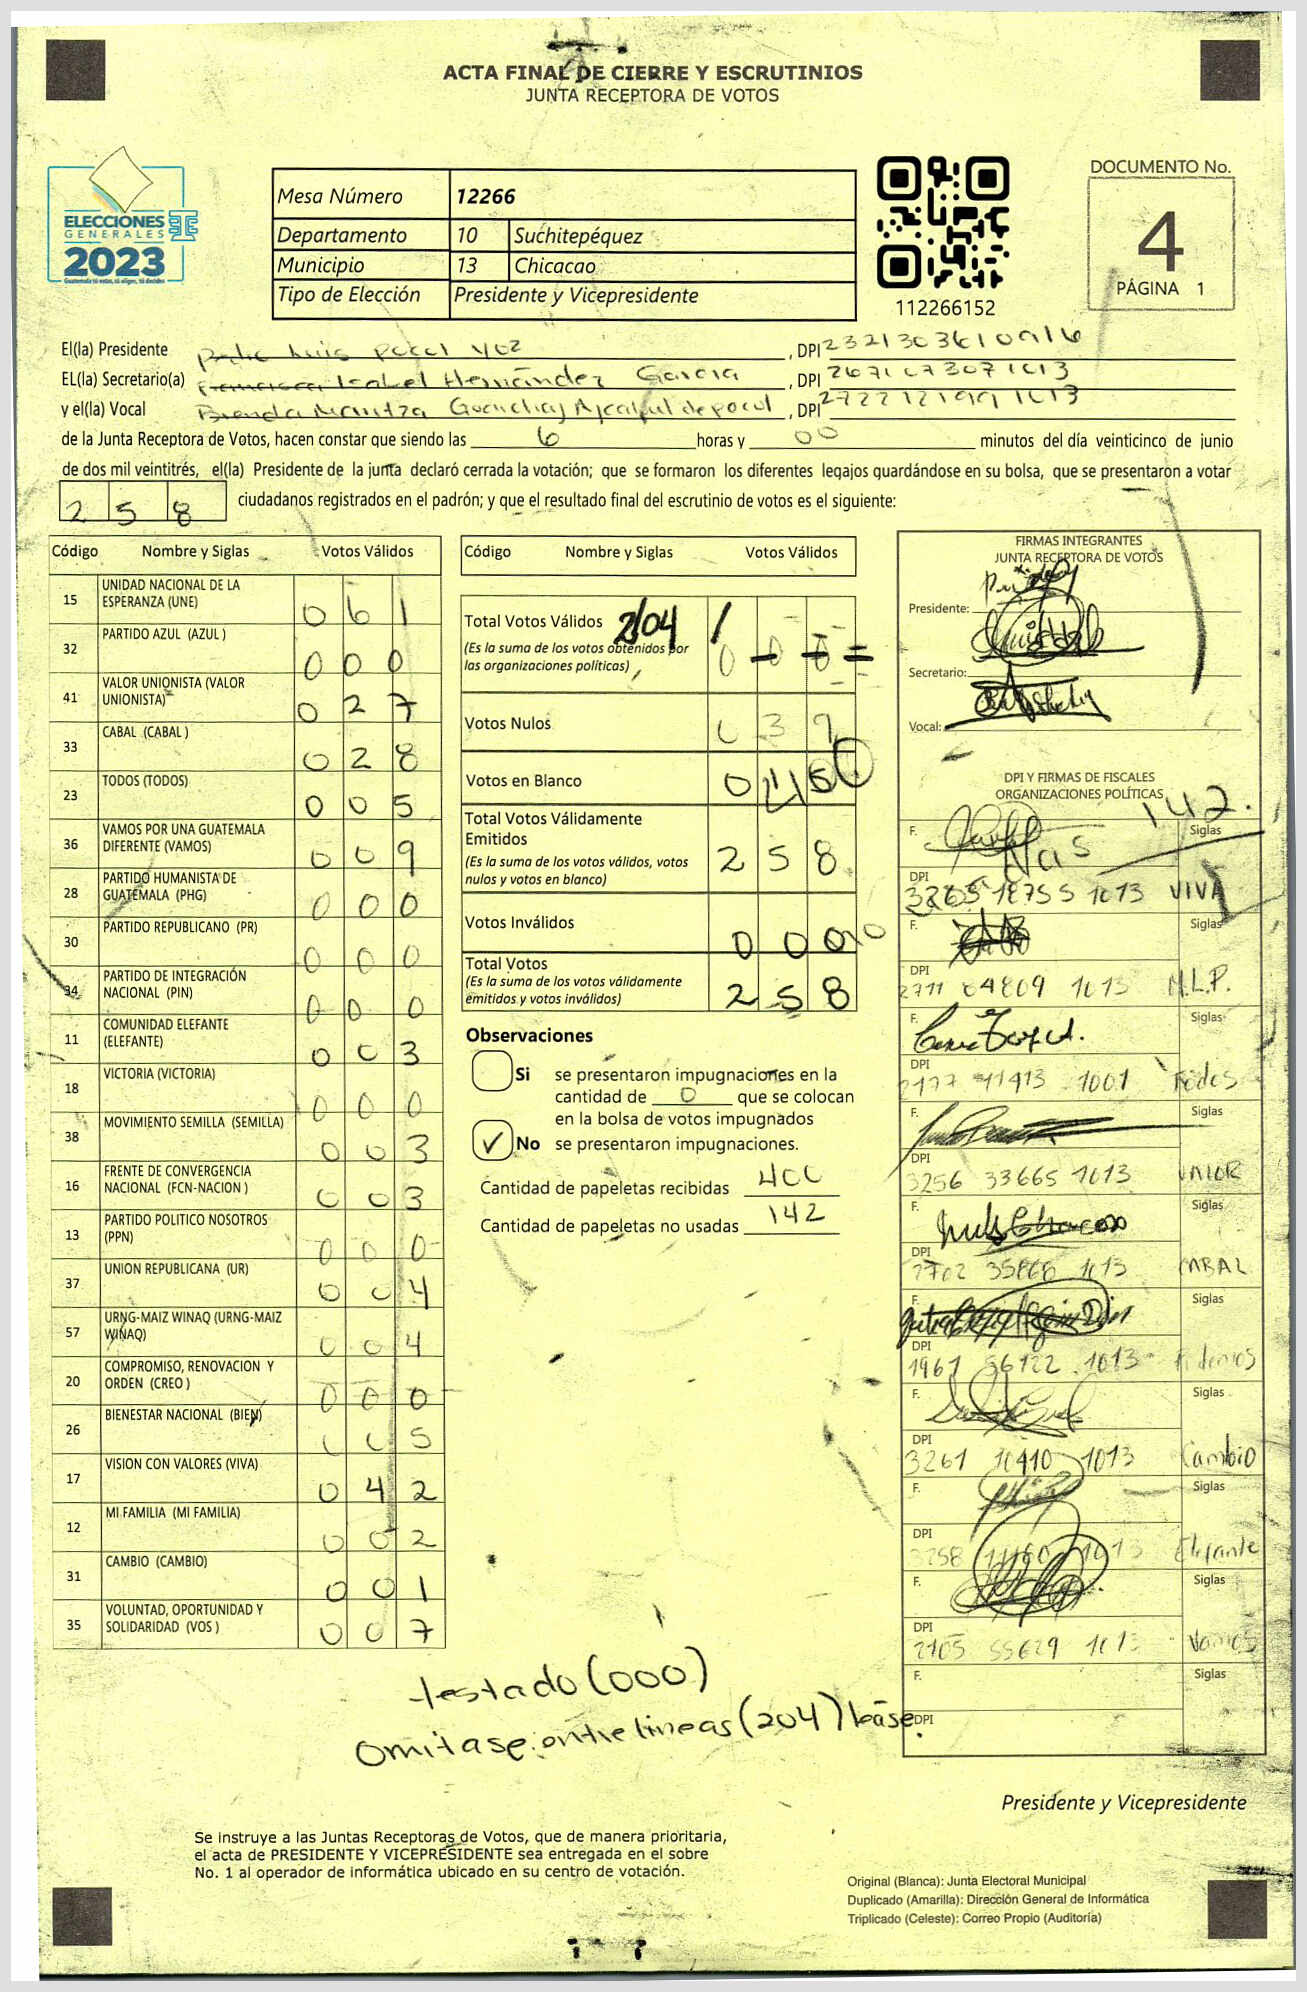 ACTA FINAL DE CIERRE Y ESCRUTINIOS
JUNTA RECEPTORA DE VOTOS
ELECCIONES
GENERALES
2023
Guatemala tú votas, tú eliges, tú decides
Mesa Número 12266
Departamento 10 Suchitepéquez
Municipio 13 Chicacao
Tipo de Elección Presidente y Vicepresidente
112266152
DOCUMENTO No.
4
PÁGINA 1
El(la) Presidente Luis Pocol , DPI
EL(la) Secretario(a) Francisca Isabel Hernández Garcia , DPI
y el(la) Vocal Brenda Maritza de pocol , DPI
de la Junta Receptora de Votos, hacen constar que siendo las 6 horas y 00 minutos del día veinticinco de junio
de dos mil veintitrés, el(la) Presidente de la junta declaró cerrada la votación; que se formaron los diferentes legajos guardándose en su bolsa, que se presentaron a votar
258 ciudadanos registrados en el padrón; y que el resultado final del escrutinio de votos es el siguiente:
Código Nombre y Siglas Votos Válidos
15 UNIDAD NACIONAL DE LA ESPERANZA (UNE) 0 6 1
32 PARTIDO AZUL (AZUL ) 0 0 0
41 VALOR UNIONISTA (VALOR UNIONISTA) 0 2 7
33 CABAL (CABAL ) 0 2 8
23 TODOS (TODOS) 0 0 5
36 VAMOS POR UNA GUATEMALA DIFERENTE (VAMOS) 0 0 9
28 PARTIDO HUMANISTA DE GUATEMALA (PHG) 0 0 0
30 PARTIDO REPUBLICANO (PR) 0 0 0
34 PARTIDO DE INTEGRACIÓN NACIONAL (PIN) 0 0 0
11 COMUNIDAD ELEFANTE (ELEFANTE) 0 0 3
18 VICTORIA (VICTORIA) 0 0 0
38 MOVIMIENTO SEMILLA (SEMILLA) 0 0 3
16 FRENTE DE CONVERGENCIA NACIONAL (FCN-NACION ) 0 0 3
13 PARTIDO POLITICO NOSOTROS (PPN) 0 0 0
37 UNION REPUBLICANA (UR) 0 0 4
57 URNG-MAIZ WINAQ (URNG-MAIZ WINAQ) 0 0 4
20 COMPROMISO, RENOVACION Y ORDEN (CREO ) 0 0 0
26 BIENESTAR NACIONAL (BIEN) 0 0 5
17 VISION CON VALORES (VIVA) 0 4 2
12 MI FAMILIA (MI FAMILIA) 0 0 2
31 CAMBIO (CAMBIO) 0 0 1
35 VOLUNTAD, OPORTUNIDAD Y SOLIDARIDAD (VOS ) 0 0 7
Código Nombre y Siglas Votos Válidos
Total Votos Válidos 204 0 0 0
(Es la suma de los votos obtenidos por
las organizaciones políticas)
Votos Nulos 0 3 9
Votos en Blanco 0
Total Votos Válidamente
Emitidos 2 5 8
(Es la suma de los votos válidos, votos
nulos y votos en blanco)
Votos Inválidos 0 0 0
Total Votos 2 5 8
(Es la suma de los votos válidamente
emitidos y votos inválidos)
Observaciones
Si se presentaron impugnaciones en la
cantidad de 0 que se colocan
en la bolsa de votos impugnados
✓ No se presentaron impugnaciones.
Cantidad de papeletas recibidas 400
Cantidad de papeletas no usadas 142
FIRMAS INTEGRANTES
JUNTA RECEPTORA DE VOTOS
Presidente:
Secretario:
Vocal:
DPI Y FIRMAS DE FISCALES
ORGANIZACIONES POLÍTICAS
142.
F. Siglas
DPI 1013 VIVA
F. Siglas
DPI 2711 64809 1013 M.L.P.
F. Siglas
DPI 2177 11413 1001 Todos
F. Siglas
DPI 3256 33665 1013 VALOR
F. Siglas
DPI 2702 1013 CABAL
F. Siglas
DPI 1961 1013
F. Siglas
DPI 3261 10410 1013 Cambio
F. Siglas
DPI 3258 1013 Elefante
F. Siglas
DPI 2105 55629 1013 Vamos
F. Siglas
DPI
testado (000)
Omitase. entre lineas (204) léase.
Presidente y Vicepresidente
Se instruye a las Juntas Receptoras de Votos, que de manera prioritaria,
el acta de PRESIDENTE Y VICEPRESIDENTE sea entregada en el sobre
No. 1 al operador de informática ubicado en su centro de votación.
Original (Blanca): Junta Electoral Municipal
Duplicado (Amarilla): Dirección General de Informática
Triplicado (Celeste): Correo Propio (Auditoría)